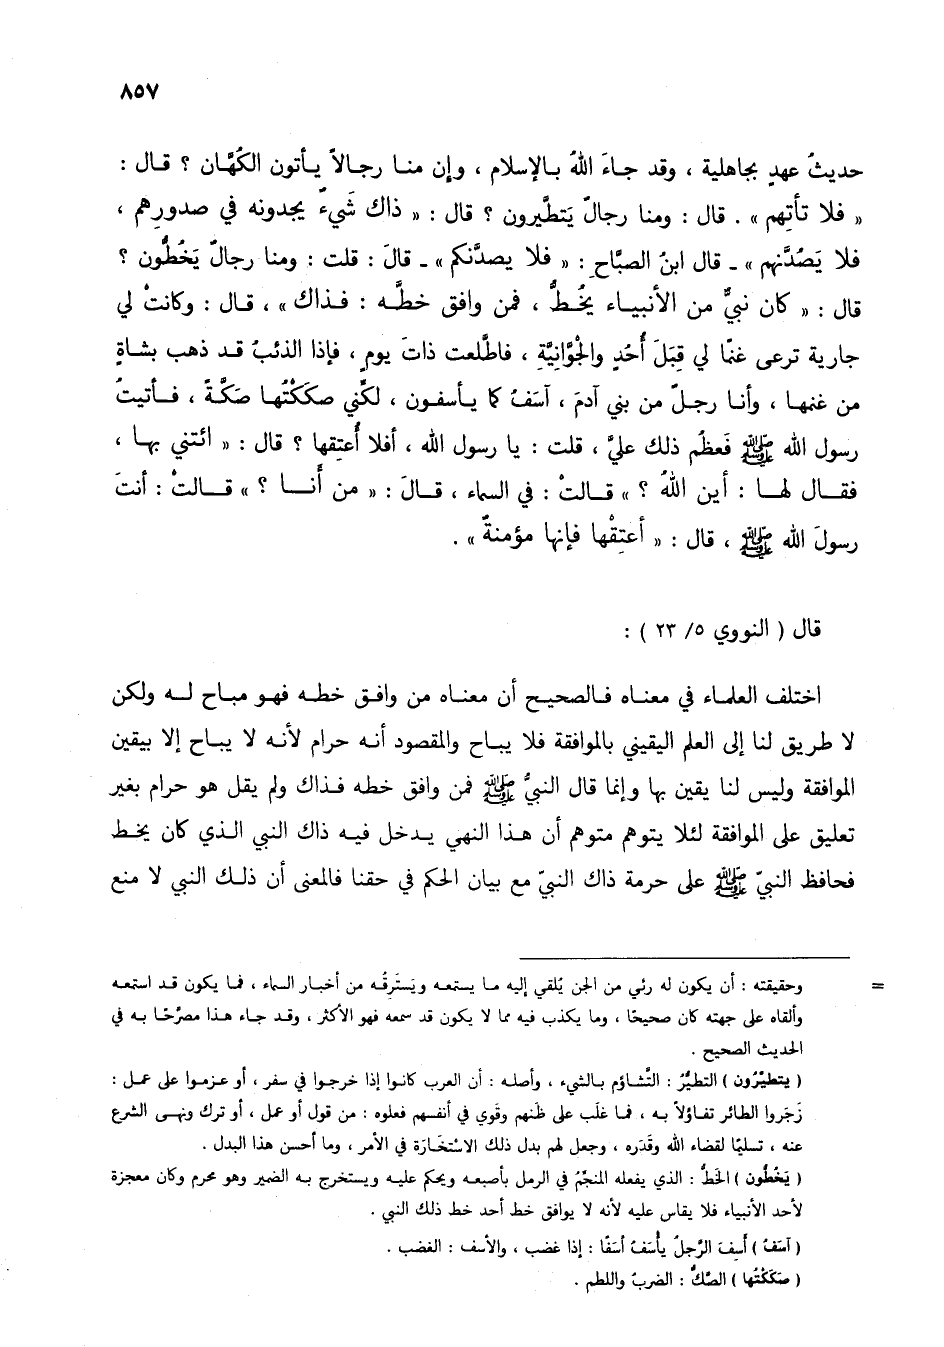 ٨٥٧
حديثُ عهدٍ بجاهلية ، وقد جاءَ اللهُ بالإسلام ، وإن منا رجالاً يأتون الكُهَّان ؟ قال :
« فلا تأتهم » . قال : ومنا رجالٌ يَتطَّيرون ؟ قال : « ذاك شَيءٌ يجدونه في صدورِهم ،
فلا يَصُدَّنهم » ـ قال ابنُ الصبَّاح : « فلا يصدَّنكم » ـ قالَ : قلت : ومنا رجالٌ يَخُطُّون ؟
قال : « كان نبيٌّ من الأنبياء يَخُطُّ ، فمن وافق خطَّه : فذاك » ، قال : وكانتْ لي
جارية ترعى غنمًا لي قِبَلَ أُحُدٍ والجَوَّانِيَّةِ ، فاطَّلعت ذاتَ يومٍ ، فإذا الذئبُ قد ذهب بشاةٍ
من غنمها ، وأنا رجلٌ من بني آدمَ ، آسَفُ كما يأسفون ، لكنِّي صكَكْتُها صَكَّةً ، فأتيتُ
رسول الله ﷺ فَعظَّم ذلك عليَّ ، قلت : يا رسول الله ، أفلا أُعتِقها ؟ قال : « ائتني بها ،
فقال لها : أين اللهُ ؟ » قالتْ : في السماء ، قالَ : « من أَنا ؟ » قالتْ : أنتَ
رسولَ الله ﷺ ، قال : « أعتِقْها فإنها مؤمنةٌ » .
قال ( النووي ٥/ ٢٣ ) :
اختلف العلماء في معناه فالصحيح أن معناه من وافق خطه فهو مباح له ولكن
لا طريق لنا إلى العلم اليقيني بالموافقة فلا يباح والمقصود أنه حرام لأنه لا يباح إلا بيقين
الموافقة وليس لنا يقين بها وإنما قال النبيُّ ﷺ فمن وافق خطه فذاك ولم يقل هو حرام بغير
تعليق على الموافقة لئلا يتوهم متوهم أن هذا النهي يدخل فيه ذاك النبي الذي كان يخط
فحافظ النبيّ ﷺ على حرمة ذاك النبيّ مع بيان الحكم في حقنا فالمعنى أن ذلك النبي لا منع
= وحقيقته : أن يكون له رئي من الجن يُلقي إليه ما يستمعه ويَسترِقُه من أخبار السماء ، فما يكون قد استمعه
وألقاه على جهته كان صحيحًا ، وما يكذب فيه مما لا يكون قد سمعه فهو الأكثر ، وقد جاء هذا مصرَّحًا به في
الحديث الصحيح .
( يتطيَّرُون ) التطيُّر : التَّشاؤم بالشيء ، وأصله : أن العرب كانوا إذا خرجوا في سفر ، أو عزموا على عمل :
زَجَروا الطائر تفاؤلاً به ، فما غلَب على ظنهم وقَوي في أنفسهم فعلوه : من قول أو عمل ، أو ترك ونهى الشرع
عنه ، تسليمًا لقضاء الله وقَدَره ، وجعل لهم بدل ذلك الاسْتخَارَة في الأمر ، وما أحسن هذا البدل .
( يَخُطُّون ) الخَطُّ : الذي يفعله المنجِّمُ في الرمل بأصبعه ويحكم عليه ويستخرج به الضمير وهو محرم وكان معجزة
لأحد الأنبياء فلا يقاس عليه لأنه لا يوافق خط أحد خط ذلك النبي .
( آسَفُ ) أَسِفَ الرَّجلُ يأسَفُ أسَفًا : إذا غضب ، والأسف : الغضب .
( صَكَكْتُها ) الصَّكُّ : الضربُ واللطم .